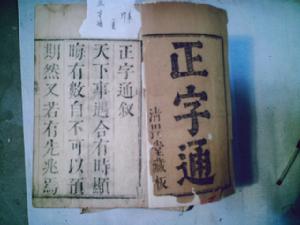 正字通
清畏堂藏板
正字通叙
天下事遇合有時顯
晦有數自不可以預
期然又若有先兆焉